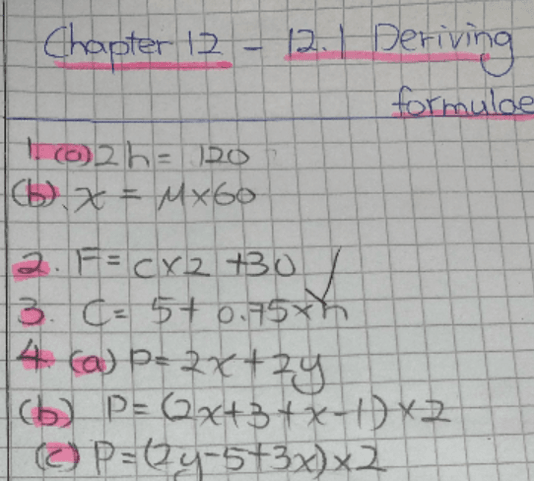 Chapter 12 - 12.1 Deriving
formulae
1. (a) 2h = 120
(b). x = M×60
2. F = C×2 +30
3. C = 5+ 0.75×h
4. (a) P= 2x+2y
(b) P= (2x+3+x-1)×2
(c) P=(2y-5+3x)×2